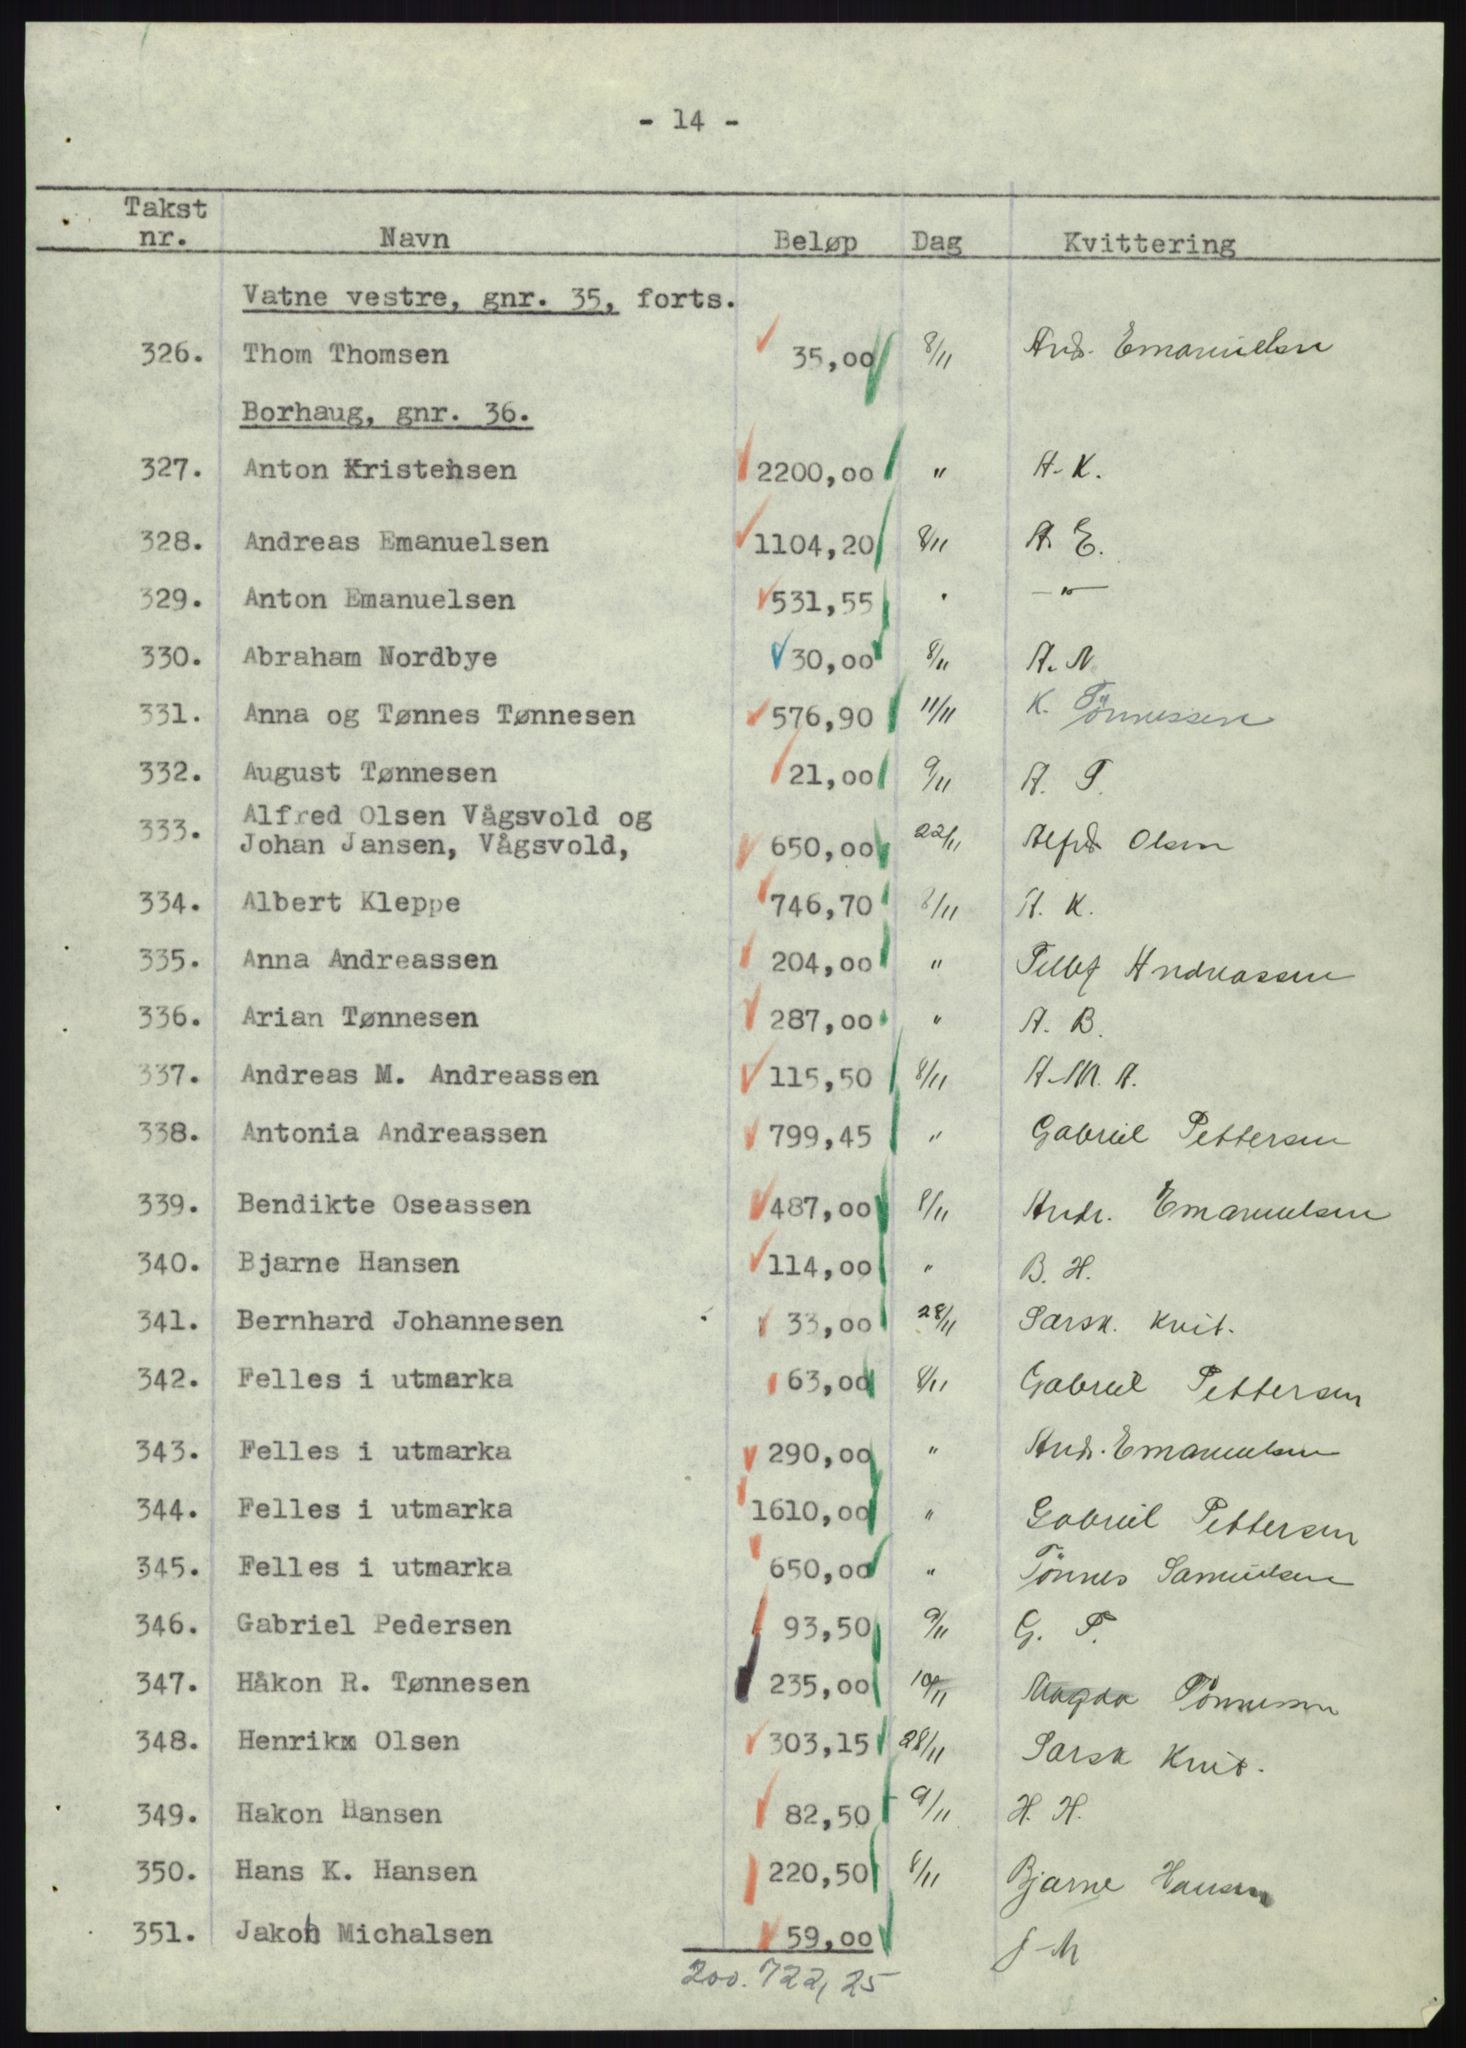 - 14 -
Takst nr. Navn Beløp Dag Kvittering
Vatne vestre, gnr. 35, forts.
326. Thom Thomsen 35,00 8/11 Andr. Emanuelsen
Borhaug, gnr. 36.
327. Anton Kristensen 2200,00 " A. K.
328. Andreas Emanuelsen 1104,20 8/11 A. E.
329. Anton Emanuelsen 531,55 " — " —
330. Abraham Nordbye 30,00 8/11 A. N
331. Anna og Tønnes Tønnesen 576,90 11/11 K. Tönnessen
332. August Tønnesen 21,00 9/11 A. T.
333. Alfred Olsen Vågsvold og
Johan Jansen, Vågsvold, 650,00 22/11 Alfrd Olsen
334. Albert Kleppe 746,70 8/11 A. K.
335. Anna Andreassen 204,00 " Tellef Andreassen
336. Arian Tønnesen 287,00 " A. B.
337. Andreas M. Andreassen 115,50 8/11 A. M. A.
338. Antonia Andreassen 799,45 " Gabriel Pettersen
339. Bendikte Oseassen 487,00 8/11 Andr. Emanuelsen
340. Bjarne Hansen 114,00 " B. H.
341. Bernhard Johannesen 33,00 28/11 Særsk. kvit.
342. Felles i utmarka 63,00 8/11 Gabriel Pettersen
343. Felles i utmarka 290,00 " Andr. Emanuelsen
344. Felles i utmarka 1610,00 " Gabriel Pettersen
345. Felles i utmarka 650,00 " Tönnes Samuelsen
346. Gabriel Pedersen 93,50 9/11 G. P.
347. Håkon R. Tønnesen 235,00 10/11 Magda Tönnesen
348. Henrikx Olsen 303,15 28/11 Særsk Kvit.
349. Hakon Hansen 82,50 9/11 H. H.
350. Hans K. Hansen 220,50 8/11 Bjarne Hansen
351. Jakob Michalsen 59,00 J-M
200.722,25